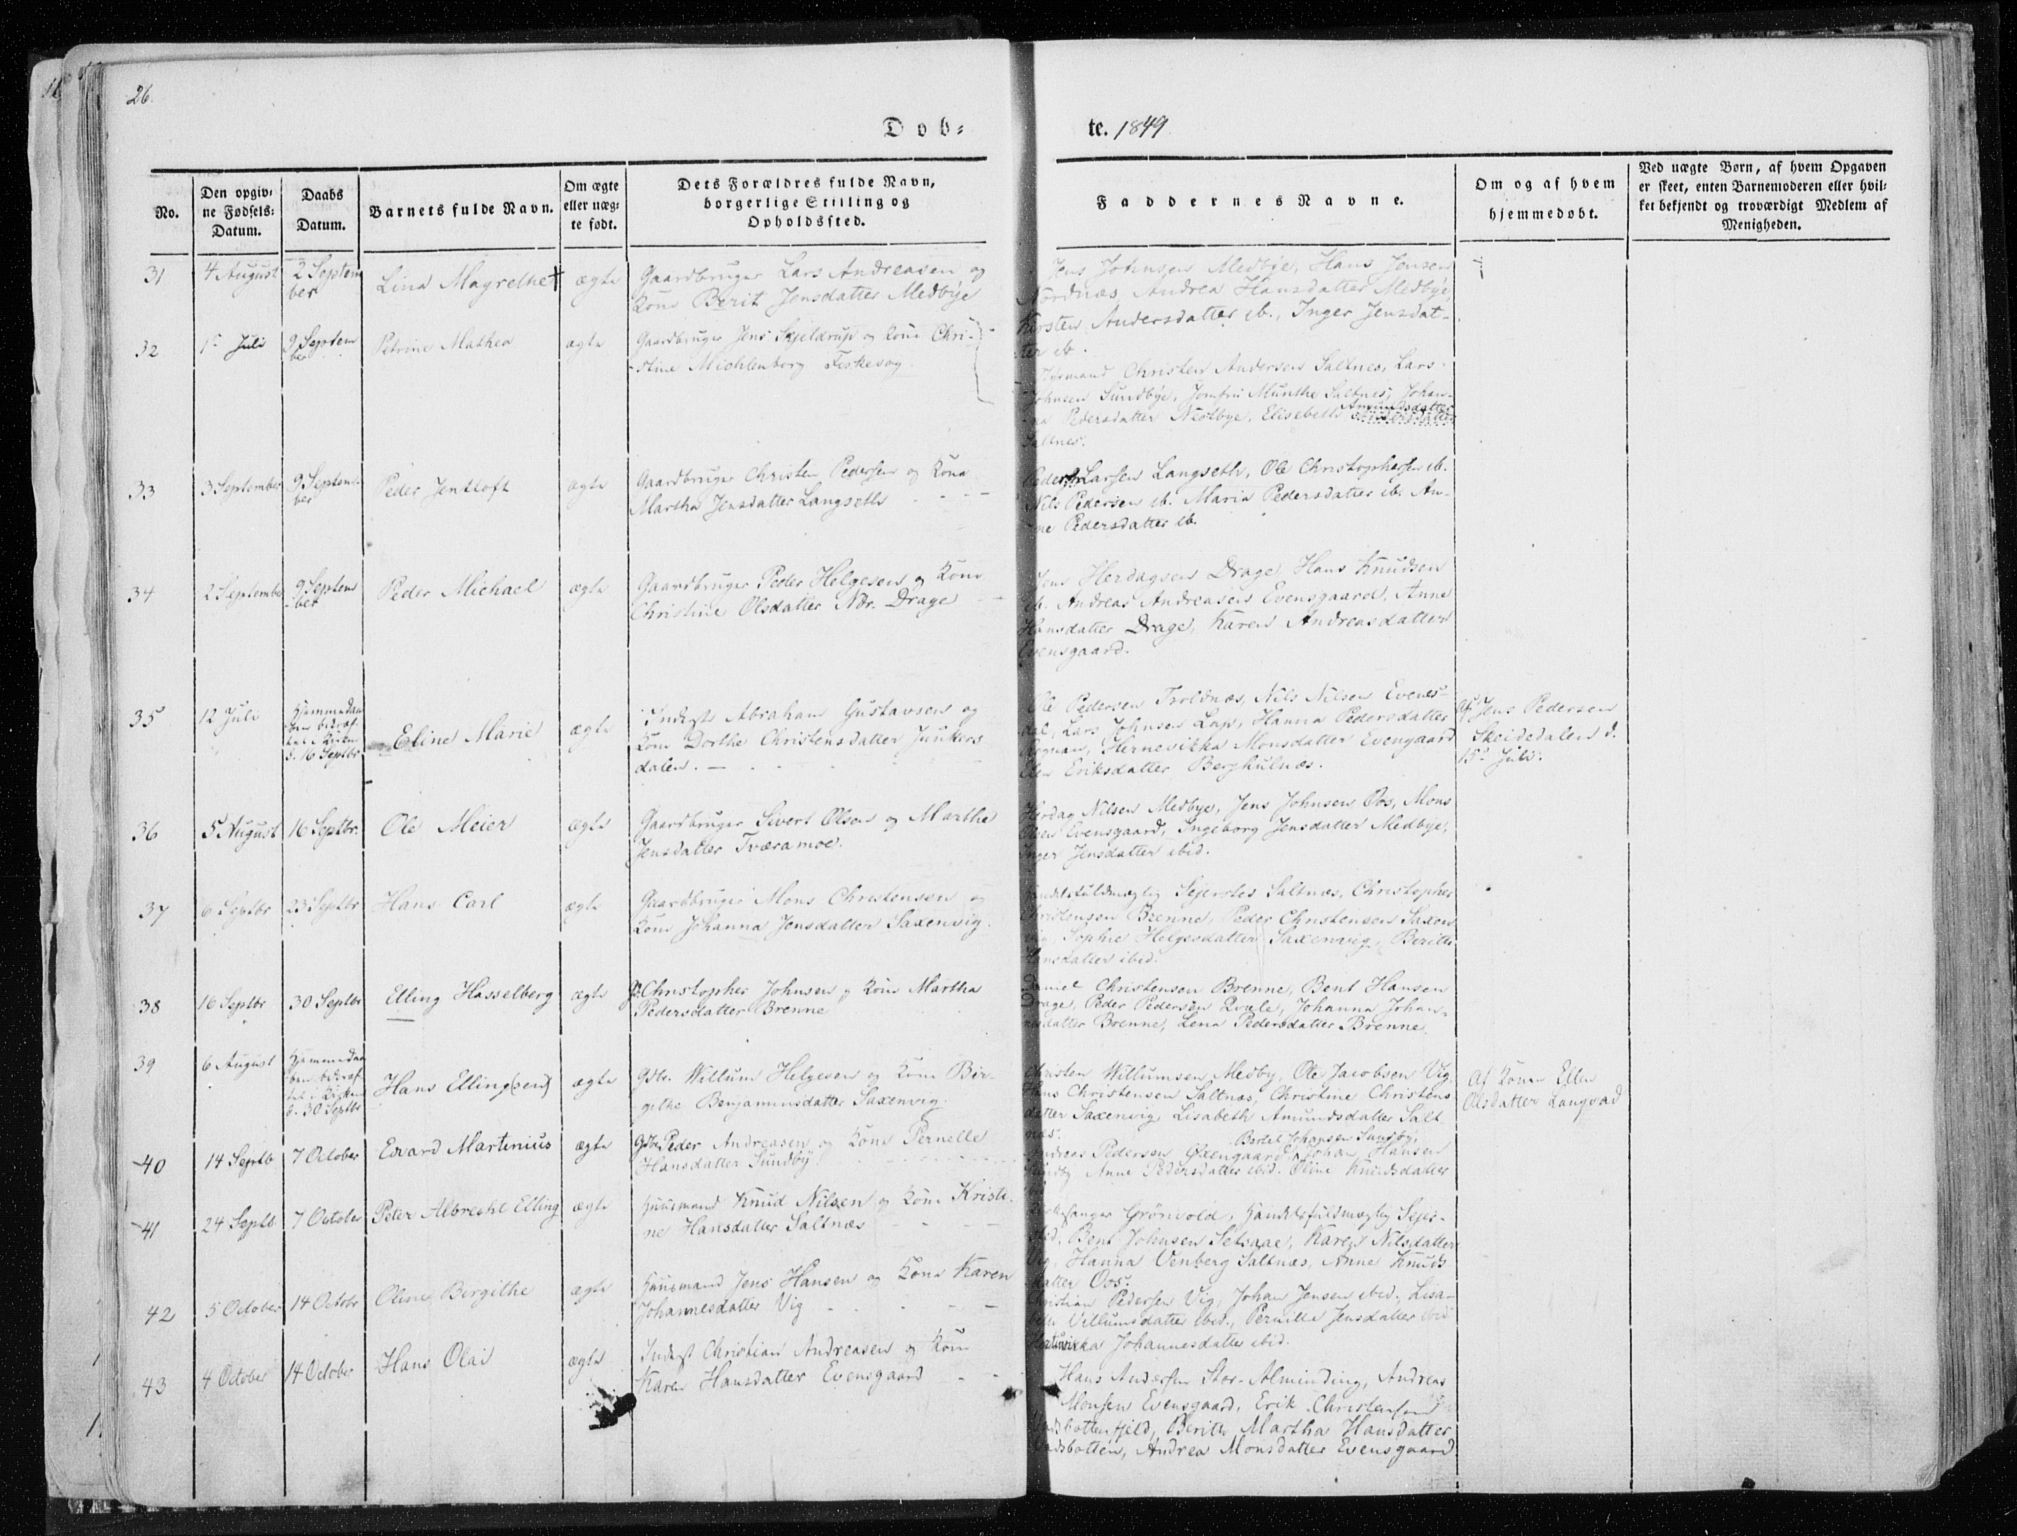 26.
Døb-
te. 1849.
No.
Den opgiv-
ne Fødsels-
Datum.
Daabs
Datum.
Barnets fulde Navn.
Om ægte
eller uæg-
te født.
Dets Forældres fulde Navn,
borgerlige Stilling og
Opholdssted.
Faddernes Navne.
Om og af hvem
hjemmedøbt.
Ved uægte Børn, af hvem Opgaven
er skeet, enten Barnemoderen eller hvil-
ket bekjendt og troværdigt Medlem af
Menigheden.
31
4 August
2 Septem
ber
Lina Magrethe †
ægte
Gaardbruger Lars Andreasen og
Kone Berit Jensdatter Medbye
Jens Johnsen Medbye, Hans Jensen
Nordnæs, Andrea Hansdatter Medbye,
Kirsten Andersdatter ib., Inger Jensdat-
ter ib.
32
1ste Juli
9 Septem
ber
Petrine Mathea
ægte
Gaardbruger Jens Skjeldrup og Kone Chri-
stine Michlenborg Fiskevog.
Christen Andersen Saltnes, Lars
Johnsen Sundbye, Jomfru Munthe Saltnes, Johan-
na Pedersdatter Medbye, Elisabeth Amundsdatter
Saltnes.
33
3 September
9 Septem-
ber
Peder Jentloft
ægte
Gaardbruger Christen Pedersen og Kone
Martha Jensdatter Langseth
Peder Larsen Langseth, Ole Christophersen ib.
Nils Pedersen ib. Maria Pedersdatter ib. An-
ne Pedersdatter ib.
34
2 September
9 Septem
ber
Peder Michael
ægte
Gaardbruger Peder Helgesen og Kone
Christine Olsdatter Ndr. Drage
Jens Herdagsen Drage, Hans Knudsen
ib. Andreas Andreasen Evensgaard, Anne
Hansdatter Drage, Karen Andreasdatter
Evensgaard.
35
12 Juli
Hjemmedaa
ben bekræf-
tet i Kirken
d. 16 Septbr
Eline Marie
ægte
Inderst Abraham Gustavsen og
Kone Dorthe Christensdatter Junkers
dalen.
Ole Pedersen Troldnæs, Nils Nilsen Evenes-
dal, Lars Johnsen Lap, Hanna Pedersdatter
Rognan, Hernevikka Monsdatter Evensgaard
Elen Eriksdatter Berghulnæs.
Af Jens Pedersen
Skeidedalen d.
15de Juli.
36
5 August
16 Septbr.
Ole Meier
ægte
Gaardbruger Sivert Olsen og Marthe
Jensdatter Tværamoe.
Herdag Nilsen Medbye, Jens Johnsen Oos, Mons
Olsen Evensgaard, Ingeborg Jensdatter Medbye,
Inger Jensdatter ibid.
37
6 Septbr
23 Septbr
Hans Carl
ægte
Gaardbruger Mons Christensen og
Kone Johanna Jensdatter Saxenvig.
Handelsfuldmægtig Sejersted Saltnæs, Christopher
Christensen Brenne, Peder Christensen Saxen
vig, Sophie Helgesdatter Saxenvig, Berithe
Hansdatter ibid.
38
16 Septbr
30 Septbr
Elling Hasselberg
ægte
Christopher Johnsen og Kone Martha
Pedersdatter Brenne
Daniel Christensen Brenne, Bent Hansen
Drage, Peder Pedersen Qvale, Johanna Johan-
nesdatter Brenne, Lena Pedersdatter Brenne.
39
6 August
Hjemmedaa
ben bekræf-
tet i Kirken
d. 30 Septbr
Hans Elling(sen)
ægte
Gdbr. Willum Helgesen og Kone Bir-
githe Benjaminsdatter Saxenvig.
Christen Willumsen Medby, Ole Jacobsen Vig,
Hans Christensen Saltnæs, Christine Christens
datter Saxenvig Lisabeth Amundsdatter Salt
næs.
Af Konen Ellen
Olsdatter Langvad
40
14 Septb
7 October
Edvard Martinius
ægte
Gdbr. Peder Andreasen og Kone Pernelle
Hansdatter Sundby.
Bertel Johansen Sundby,
Andreas Pedersen Øxengaard, Johan Hansen
Sundby Anne Pedersdatter ibid. Oline Knudsdatter
41
24 Septb
7 October
Peter Albrecht Elling
ægte
Huusmand Knud Nilsen og Kone Kristi-
ne Hansdatter Saltnæs
Kirkesanger Grönvold, Handelsfuldmægtig Sejer-
sted, Bent Johnsen Setsaae, Karen Nilsdatter
Vig, Hanna Venberg Saltnæs, Anne Knuds
datter Oos.
42
5 October
14 Octobr
Oline Birgithe
ægte
Huusmand Jens Hansen og Kone Karen
Johannesdatter Vig
Christian Pedersen Vig, Johan Jensen ibid., Lisa-
beth Villumsdatter ibid., Pernille Jensdatter ibid
Johannesdatter ibid.
43
4 October
14 October
Hans Olai
ægte
Inderst Christian Andreasen og Kone
Karen Hansdatter Evensgaard
Hans Andersen Stor-Alminding, Andreas
Monsen Evensgaard, Erik Christensen
Vadsbottenfjeld, Berith Martha Hansdatter
Vadsbotten, Andrea Monsdatter Evensgaard